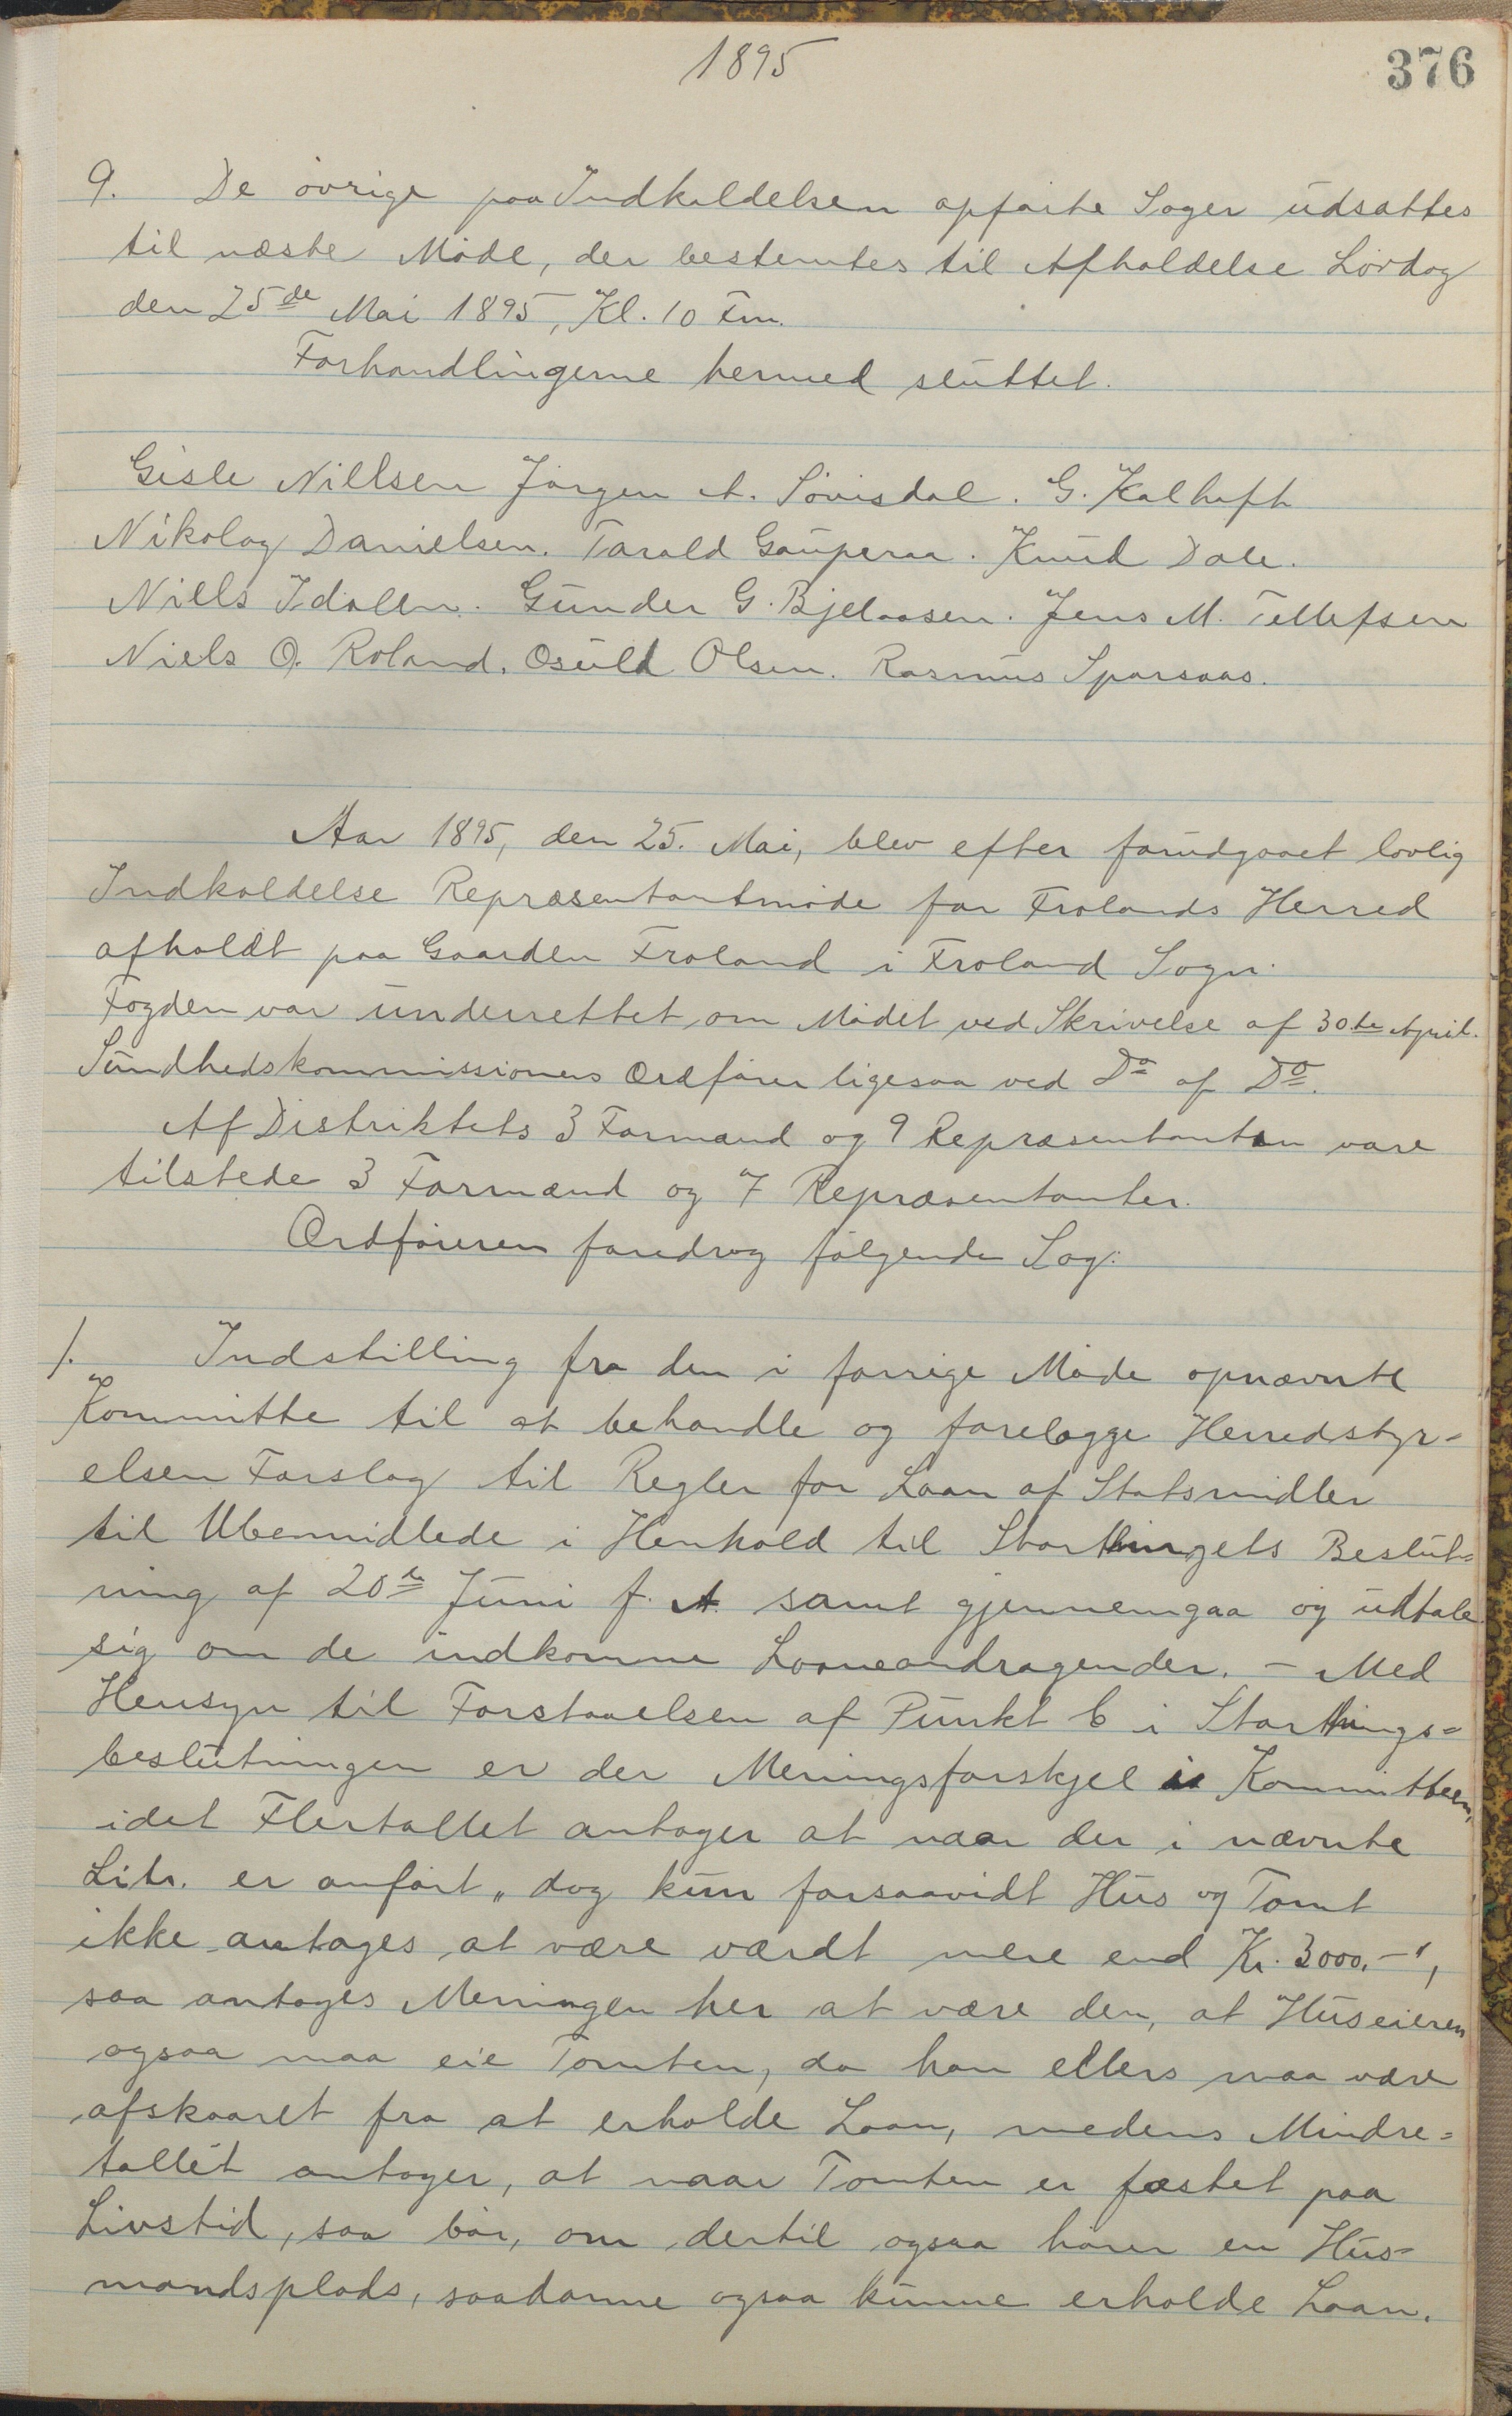 1895
376
9. De øvrige paa Indkaldelsen opførte Sager udsattes
til næste Møde, der bestemtes til Afholdelse Lørdag
den 25de Mai 1895, Kl. 10 Fm.
Forhandlingerne hermed sluttet.
Gisle Nillsen Jørgen A. Løvisdal. G. Kalhoft
Nikolay Danielsen. Tarald Gauperaa. Knud Dale.
Niels Ydalen. Gunder G. Bjelaasen. Jens M. Tellefsen
Niels O. Roland. Osuld Olsen. Rasmus Sparsaas.
Aar 1895, den 25. Mai, blev efter forudgaaet lovlig
Indkaldelse Repræsentantmøde for Frolands Herred
afholdt paa Gaarden Froland i Froland Sogn.
Fogden var underrettet om Mødet ved Skrivelse af 30te April.
Sundhedskommissionens Ordfører ligesaa ved Do af Do.
Af Distriktets 3 Formænd og 9 Repræsentanter vare
tilstede 3 Formænd og 7 Repræsentanter.
Ordføreren foredrog følgende Sag:
1. Indstilling fra den i forrige Møde opnævnte
Kommitte til at behandle og forelægge Herredstyr-
elsen Forslag til Regler for Laan af Statsmidler
til Ubemidlede i Henhold til Storthingets Beslut-
ning af 20de Juni f. A. samt gjennemgaa og udtale
sig om de indkomne Laaneandragender. - Med
Hensyn til Forstaaelsen af Punkt b i Storthings-
beslutningen er der Meningsforskjel i Kommitteen,
idet Flertallet antager at naar der i nævnte
Litr. er anført „dog kun forsaavidt Hus og Tomt
ikke antages at være værdt mere end Kr. 3000.-",
saa antages Meningen her at være den, at Huseieren
ogsaa maa eie Tomten, da han ellers maa være
afskaaret fra at erholde Laan, medens Mindre-
tallet antager, at naar Tomten er fæstet paa
Livstid, saa bør, om dertil ogsaa hører en Hus-
mandsplads, saadanne ogsaa kunne erholde Laan.